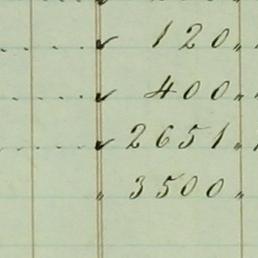 120 "
400 "
2651 "
" 3500 "